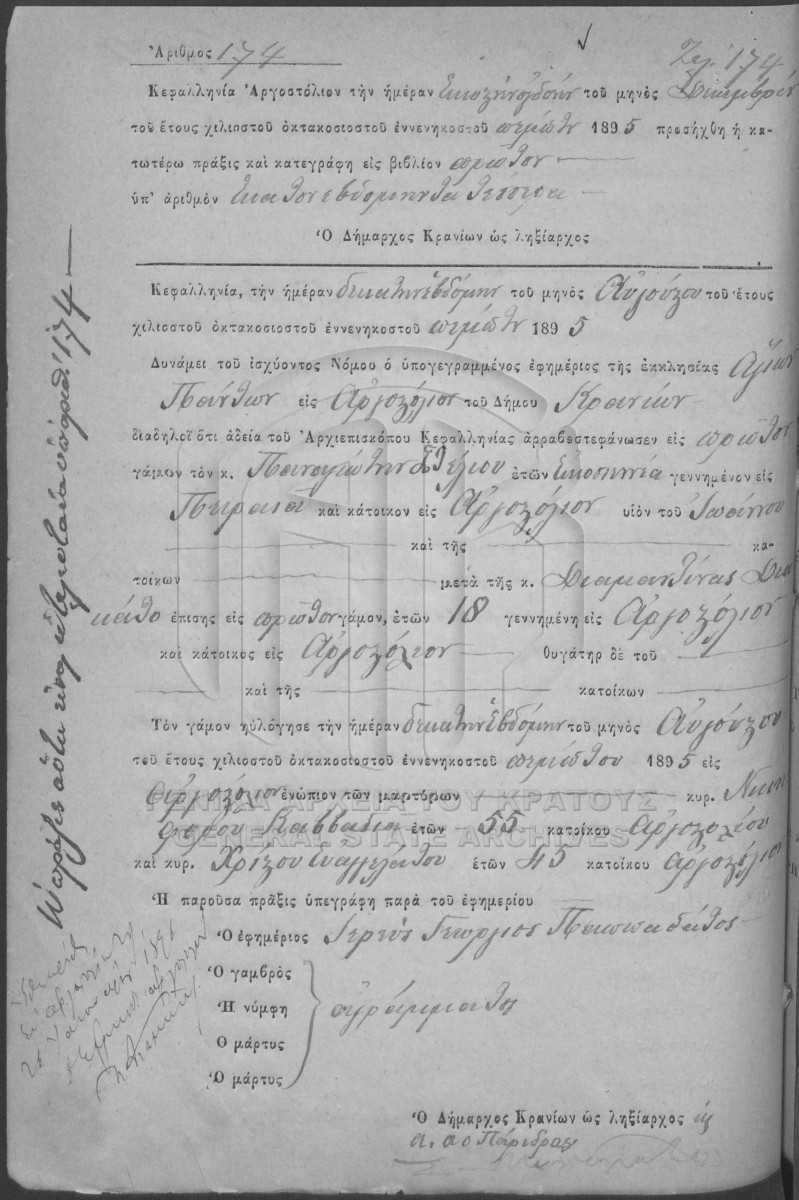 Ἀριθμος 174
Σελ. 174
Κεφαλληνία Ἀργοστόλιον τὴν ἡμέραν Εικοστην ογδόην τοῦ μηνὸς Δεκεμβρίου
τοῦ ἔτους χιλιοστοῦ ὀκτακοσιοστοῦ ἐννενηκοστοῦ πεμπτου 1895 προσήχθη ἡ κα-
τωτέρω πρᾶξις καὶ κατεγράφη εἰς βιβλίον πρωτον
ὑπ' ἀριθμὸν Εκατον εβδομηντα τεσσερα
Ὁ Δήμαρχος Κρανίων ὡς ληξίαρχος
Κεφαλληνία, τὴν ἡμέραν δεκατην εβδόμην τοῦ μηνὸς Αυγούστου τοῦ ἔτους
χιλιοστοῦ ὀκτακοσιοστοῦ ἐννενηκοστοῦ πεμπτου 1895
Δυνάμει τοῦ ἰσχύοντος Νόμου ὁ ὑπογεγραμμένος ἐφημέριος τῆς ἐκκλησίας Αγίων
Πάντων εἰς Αργοστόλιον τοῦ Δήμου Κρανίων
διαδηλοῖ ὅτι ἀδεία τοῦ Ἀρχιεπισκόπου Κεφαλληνίας ἀρραβεστεφάνωσεν εἰς πρῶτον
γάμον τὸν κ. Παναγιώτην Στέλιου ἐτῶν Εικοσιεννέα γεννημένον εἰς
Πειραια καὶ κάτοικον εἰς Αργοστόλιον υἱὸν τοῦ Ἰωάννου
καὶ τῆς κα-
τοίκων μετὰ τῆς κ. Διαμαντίνας Δια
κάτο ἐπισης εἰς πρῶτον γάμον, ἐτῶν 18 γεννημένη εἰς Αργοστόλιον
καὶ κάτοικος εἰς Αργοστόλιον θυγάτηρ δὲ τοῦ
καὶ τῆς κατοίκων
Τὸν γάμον ηὐλόγησε τὴν ἡμέραν δεκατην εβδόμην τοῦ μηνὸς Αυγούστου
τοῦ ἔτους χιλιοστοῦ ὀκτακοσιοστοῦ ἐννενηκοστοῦ πεμπτου 1895 εἰς
Αργοστόλιον ἐνώπιον τῶν μαρτύρων κυρ. Νικη
φορου Καββαδια ἐτῶν 55 κατοίκου Αργοστολίου
καὶ κυρ. Χρίστου Ευαγγελάτου ἐτῶν 45 κατοίκου Αργοστόλιον
Ἡ παροῦσα πρᾶξις ὑπεγράφη παρὰ τοῦ ἐφημερίου
Ὁ ἐφημέριος Ιερεύς Γεώργιος Παππαδάτος
Ὁ γαμβρὸς
Ἡ νύμφη
Ὁ μάρτυς
Ὁ μάρτυς
αγράμματοι
Ὁ Δήμαρχος Κρανίων ὡς ληξίαρχος
ο Πάρεδρος
Ἡ πρᾶξις αὕτη εἶναι ὑπ' αριθ. 174
ΓΕΝΙΚΑ ΑΡΧΕΙΑ ΤΟΥ ΚΡΑΤΟΥΣ
GENERAL STATE ARCHIVES